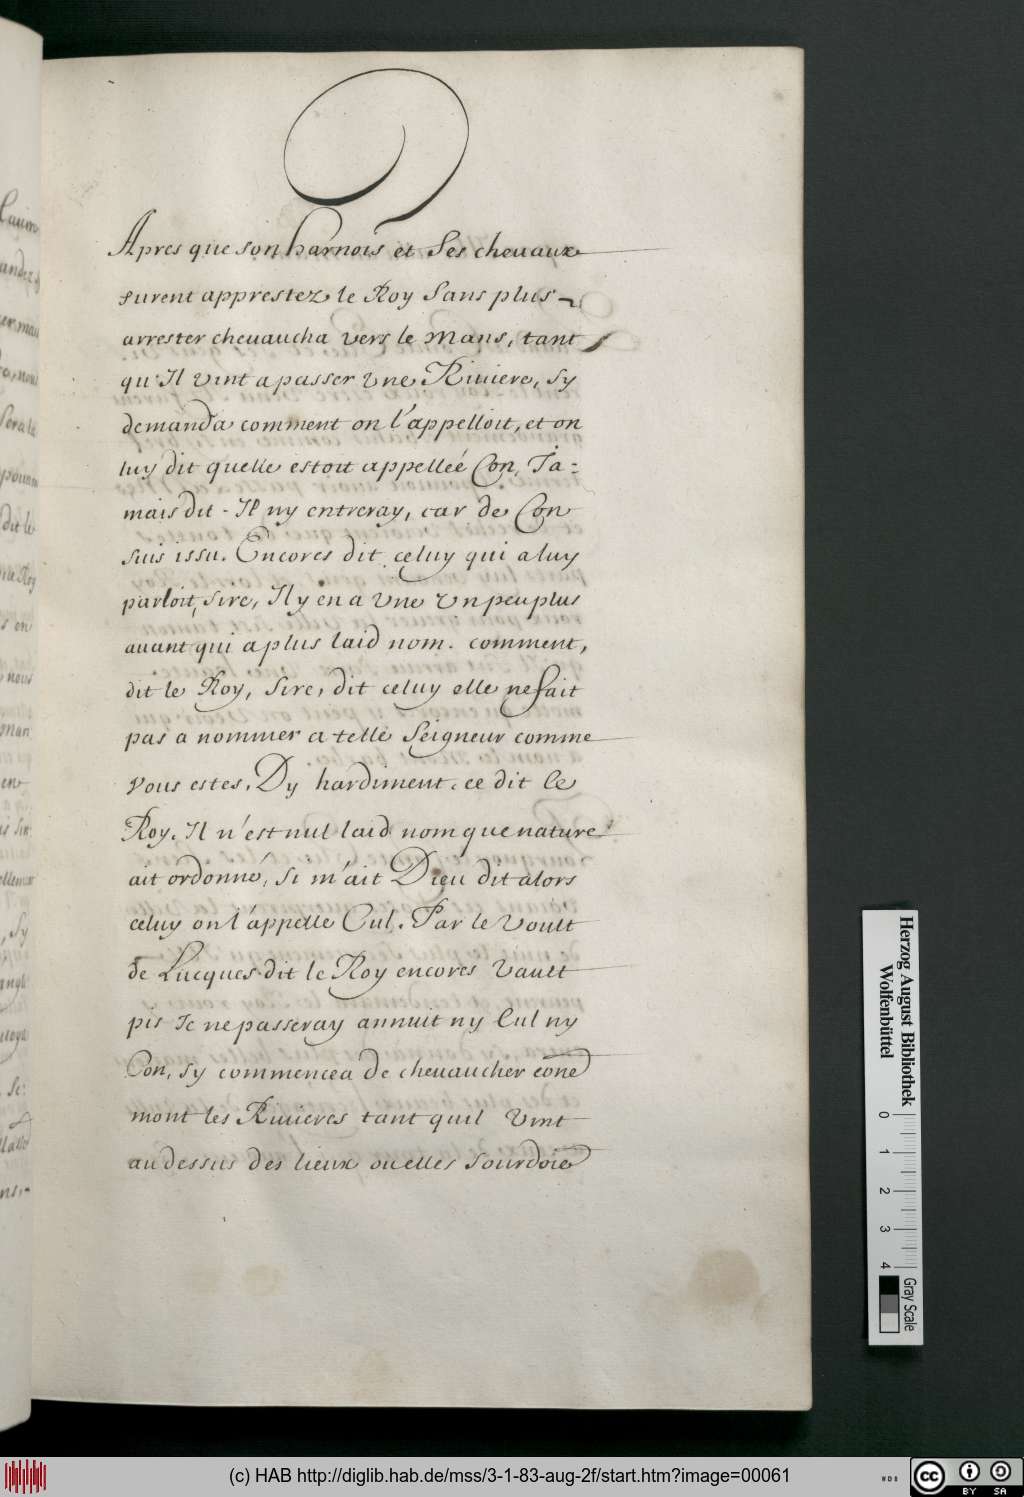 Apres que son harnois et ses cheuaux
furent apprestez le Roy sans plus
arrester cheuaucha vers le Mans, tant
qu'Il vint a passer vne Riuiere, sy
demanda comment on l'appelloit, et on
luy dit quelle estoit appelleé Con, Ja=
mais dit-Il ny entreray, car de Con
suis issu. Encores dit celuy qui a luy
parloit, sire, Il y en a vne vn peu plus
auant qui a plus laid nom. comment,
dit le Roy, sire, dit celuy elle ne fait
pas a nommer a telle seigneur comme
vous estes. Dy hardiment. ce dit le
Roy. Il n'est nul laid nom que nature
ait ordonné, si m'ait Dieu dit alors
celuy on l'appelle Cul. Par le voult
de Lucques. dit le Roy encores vault
pis Je ne passeray annuit ny Cul ny
Con, sy commencea de cheuaucher cone
mont les Riuieres tant quil vint
au dessus des lieux ou elles sourdoie
Herzog August Bibliothek
Wolfenbüttel
0 1 2 3 4
Gray Scale
(c) HAB http://diglib.hab.de/mss/3-1-83-aug-2f/start.htm?image=00061
cc BY SA